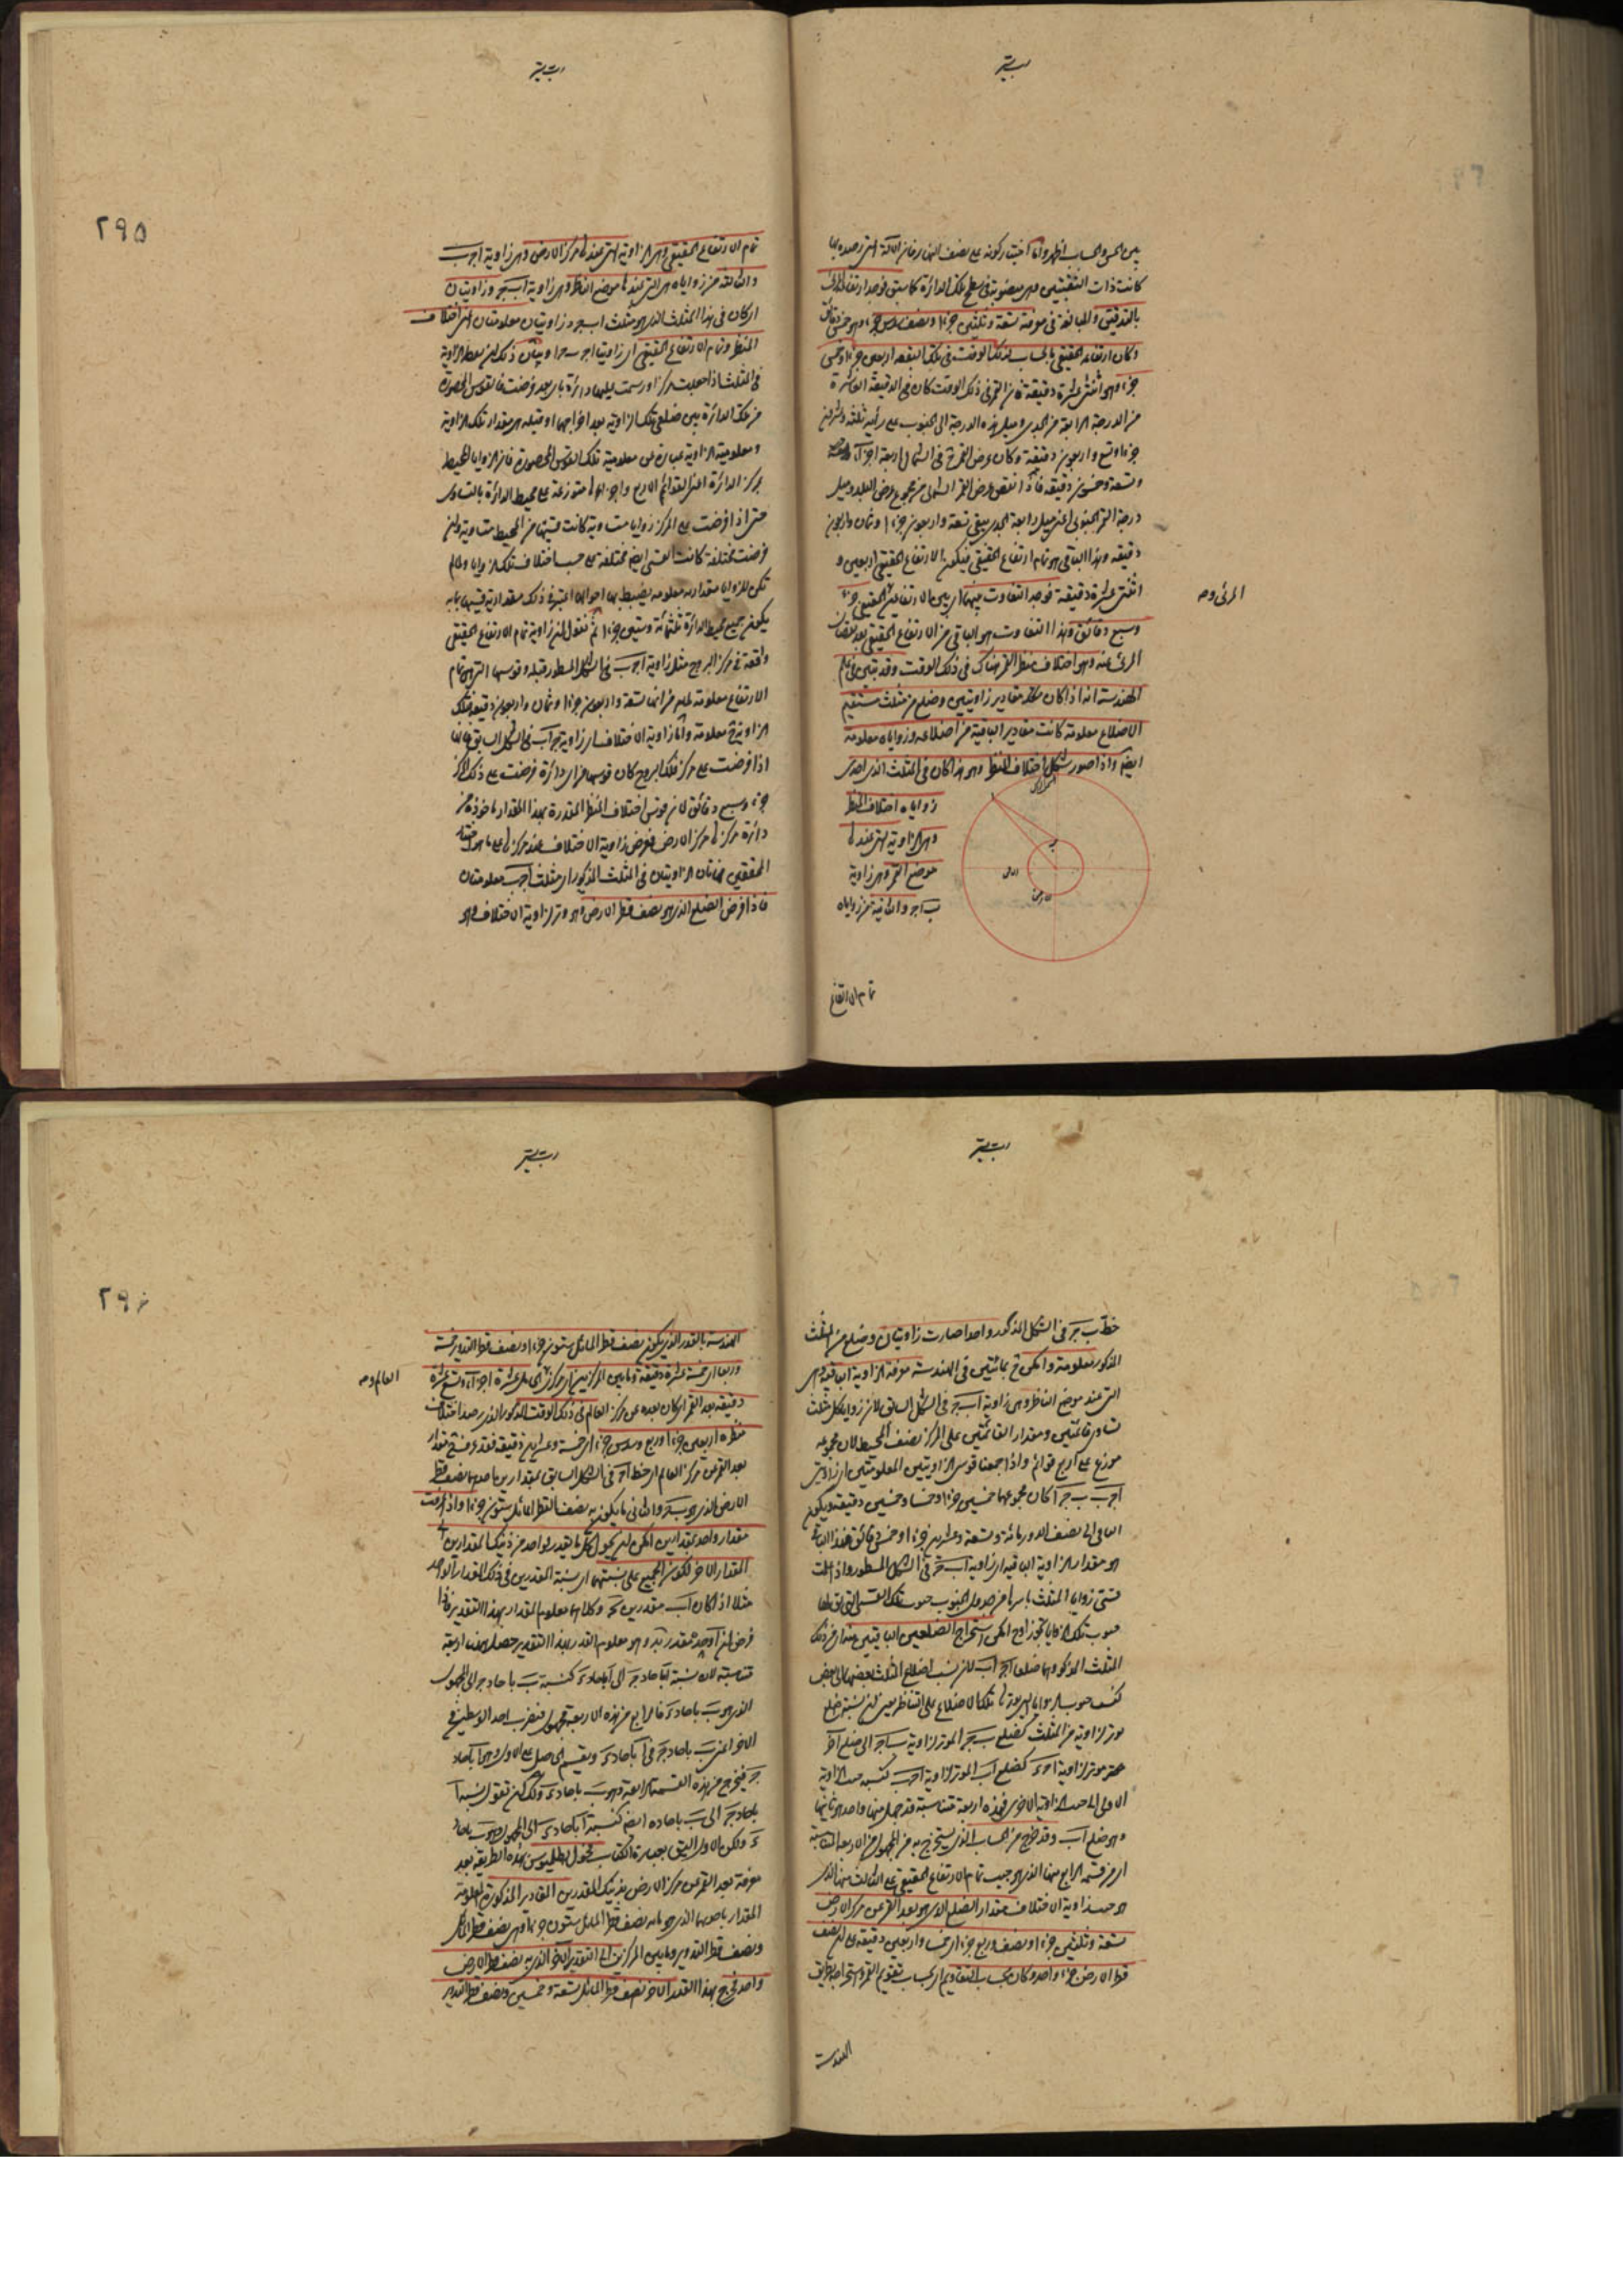 بين الحس والحساب اظهر واما اختيار كونه على نصف النهار فلان الآلة التى رصده بها
كانت ذات الثقبتين وهى منصوبة فى سطح تلك الدائرة كما سبق فوجد ارتفاعه المرئى
بالتدقيق والمبالغة فى معرفته تسعة وثلثين جزءا ونصف سدس جزء وهو خمس دقائق
وكان ارتفاعه الحقيقى بالحساب لذلك الوقت فى تلك البقعة اربعين جزءا وخمس
جزء وهو اثنتى عشرة دقيقة فان القمر فى ذلك الوقت كان فى الدقيقة العاشرة
من الدرجة الرابعة من الجدى وميل هذه الدرجة الى الجنوب على رأيه ثلثة وعشرين
جزءا وتسع واربعون دقيقة وكان عرض القمر فى الشمال اربعة اجزاء
وتسعة وخمسون دقيقة فاذا انتقص عرض القمر الشمالى من مجموع عرض البلد وميل
درجة القمر الجنوبى اعنى ميل رابعة الجدى يبقى تسعة واربعون جزءا وثمان واربعون
دقيقة وهذا الباقى هو تمام ارتفاع الحقيقى فيكون الارتفاع الحقيقى اربعين و
اثنتى عشرة دقيقة فوجد التفاوت بينهما اى بين الارتفاعين الحقيقى جزء
المرئى وصح
وسبع دقائق وهذا التفاوت هو الباقى من الارتفاع الحقيقى بعد نقصان
المرئى عنه وهو اختلاف منظر القمر هناك فى ذلك الوقت وقد تبين فى علم
الهندسة انه اذا كان مقادير زاويتين وضلع من مثلث مستقيم
الاضلاع معلومة كانت مقادير الباقية من اضلاعه وزواياه معلومة
ايضا واذا صور شكل اختلاف المنظر وهو هذا كان فى المثلث الذى احدى
زواياه اختلاف المنظر
وهى الزاوية التى عندها
موضع القمر وهى زاوية
ب ا جـ والثانية من زواياه
تمام الارتفاع
٢٩٥
تمام الارتفاع الحقيقى وهى الزاوية التى عندها مركز الارض وهى زاوية ا جـ ب
والثالثة من زواياه هى التى عندها موضع الناظر وهى زاوية ا ب جـ وزاويتان
اى كان فى هذا المثلث الذى هو مثلث ا ب جـ زاويتان معلومتان اعنى اختلاف
المنظر وتمام الارتفاع الحقيقى اى زاويتا ا جـ ب جـ ا ب وبيان ذلك ان نقطة الزاوية
فى المثلث اذا جعلت مركزا ورسمت عليها دائرة باى بعد فرضت فالقوس المحصورة
من تلك الدائرة بين ضلعى تلك الزاوية بعد اخراجهما او قبله هى مقدار تلك الزاوية
ومعلومية الزاوية عبارة عن معلومية تلك القوس المحصورة فان الزوايا المحيطة
بمركز الدائرة اعنى القوائم الاربع واجزاءها متوزعة على محيط الدائرة بالتساوى
حتى اذا فرضت على المركز زوايا متساوية كانت قسيها من المحيط متساوية وان
فرضت مختلفة كانت القسى ايضا مختلفة على حسب اختلاف تلك الزوايا ولما لم
تكن للزوايا مقادير معلومة يضبط بها احوالها اعتبر فى ذلك مقادير قسيها بانه
يكون جميع محيط الدائرة ثلثمائة وستين جزءا ثم نقول ان زاوية تمام الارتفاع الحقيقى
واقعة فى مركز البروج مثل زاوية ا جـ ب فى الشكل المسطور قبله وقوسها التى هى تمام
الارتفاع معلومة لما مر من انها تسعة واربعون جزءا وثمان واربعون دقيقة فتلك
الزاوية معلومة واما زاوية الاختلاف اى زاوية جـ ا ب فى الشكل السابق فانها
اذا فرضت على مركز فلك البروج كان قوسها من اى دائرة فرضت على ذلك المركز
جزء وسبع دقائق لان قوس اختلاف المنظر المقدرة بهذا المقدار ماخوذة من
دائرة مركزها مركز الارض ففرض زاوية الاختلاف عند مركزها على ما هو مختار
المحققين فهاتان الزاويتان فى المثلث المذكور اى مثلث ا جـ ب معلومتان
فاذا فرض الضلع الذى هو نصف قطر الارض وهو وتر لزاوية الاختلاف وهو
خط ب جـ فى الشكل المذكور واحدا صارت زاويتان وضلع من المثلث
المذكور معلومة وامكن بما تبين فى الهندسة معرفة الزاوية الباقية وهى
التى عند موضع الناظر وهى زاوية ا ب جـ فى الشكل السابق لان زوايا كل مثلث
تساوى قائمتين ومقدار القائمتين على المركز نصف المحيط لان مجموعه
موزع على اربع قوائم واذا جمعنا قوسى الزاويتين المعلومتين اى زاويتى
ا جـ ب ب جـ ا كان مجموعهما خمسين جزءا وخمسا وخمسين دقيقة ويكون
الباقى الى نصف الدور مائة وتسعة وعشرين جزءا وخمس دقائق فهذا الباقى
هو مقدار الزاوية الباقية اى زاوية ا ب جـ فى الشكل المسطور واذا اخذت
قسى زوايا المثلث باسرها من جدول الجيوب جيوب تلك القسى التى يقال لها
جيوب تلك الزوايا تجوزا وح امكن استخراج الضلعين الباقيين من
المثلث المذكور وهما ضلعا ا جـ ا ب لان نسب اضلاع المثلث بعضها الى بعض
كنسب جيوب الزوايا التى يوترها تلك الاضلاع على التناظر يعنى ان نسبة ضلع
موتر لزاوية من المثلث كضلع ب جـ الموتر لزاوية ب ا جـ الى ضلع آخر
منه موتر لزاوية اخرى كضلع ا ب الموتر لزاوية ا جـ ب كنسبة جيب الزاوية
الاولى الى جيب الزاوية الاخرى فهذه اربعة متناسبة قد جهل منها واحد هو ثانيها
وهو ضلع ا ب وقد خرج من الحساب الذى يستخرج به من المجهول من الاربعة المتناسبة
اى من قسمة الرابع منها الذى هو جيب تمام الارتفاع الحقيقى على الثالث منها الذى
هو جيب زاوية الاختلاف مقدار الضلع الذى هو بعد القمر عن مركز الارض
تسعة وثلثين جزءا ونصف وربع جزء اى خمسا واربعين دقيقة على ان نصف
قطر الارض جزء واحد وكان بحساب التقاويم اى بحساب تقويم القمر واستخراجه بطرق
الهندسة
٢٩٦
الهندسة بالقدر الذى يكون نصف قطر المائل ستون جزءا ونصف قطر التدوير خمسة
وربعا اى خمسة عشرة دقيقة وما بين المركزين اى مركزى الحامل عشرة اجزاء وتسع عشرة
العالم وصح
دقيقة بعد القمر اى كان بعده عن مركز العالم فى ذلك الوقت المذكور الذى رصد اختلاف
منظره اربعين جزءا وربع وسدس جزء اى خمسة وعشرين دقيقة فقد عرف مقدار
بعد القمر عن مركز العالم اى خط ا جـ فى الشكل السابق بمقدارين احدهما نصف قطر
الارض الذى هو ب جـ والثانى ما يكون به نصف القطر المائل ستون جزءا واذا عرفت
مقدار واحد بمقدارين امكن ان يحول كل ما تقدر بواحد من ذينك المقدارين الى
المقدار الآخر لكون الجميع على نسبتهما اى نسبة القدرين فى ذلك المقدار الواحد
مثلا اذا كان ا ب مقدرين بجـ وكلاهما معلوم المقدار بهذا التقدير فاذا
فرض ان ا وحده مقدر بـ د وهو معلوم القدر بهذا التقدير حصل هناك اربعة
متناسبة لان نسبة ا باحاد جـ الى ا باحاد د كنسبة ب باحاد جـ الى المجهول
الذى هو ب باحاد د فالرابع من هذه الاربعة مجهول فنضرب احد الوسطين فى
الآخر اعنى ب باحاد جـ فى ا باحاد د ونقسم الحاصل على الاول وهو ا باحاد
جـ فيخرج من هذه القسمة الرابعة وهو ب باحاد د ولك ان تقول نسبة ا
باحاد جـ الى ب باحاده ايضا كنسبة ا باحاد د الى المجهول وهو ب باحاد
د ولكن الاول اليق بعبارة الكتاب فحول بطلميوس بهذا الطريقة بعد
معرفة بعد القمر عن مركز الارض بذينك المقدرين المقادير المذكورة المعلومة
المقدار باحدهما الذى هو ما به نصف قطر المائل ستون جزءا وهى نصف قطر المائل
ونصف قطر التدوير وما بين المركزين الى التقدير الآخر الذى به نصف قطر الارض
واحد فخرج بهذا القدر الآخر نصف قطر المائل تسعة وخمسين ونصف قطر التدوير